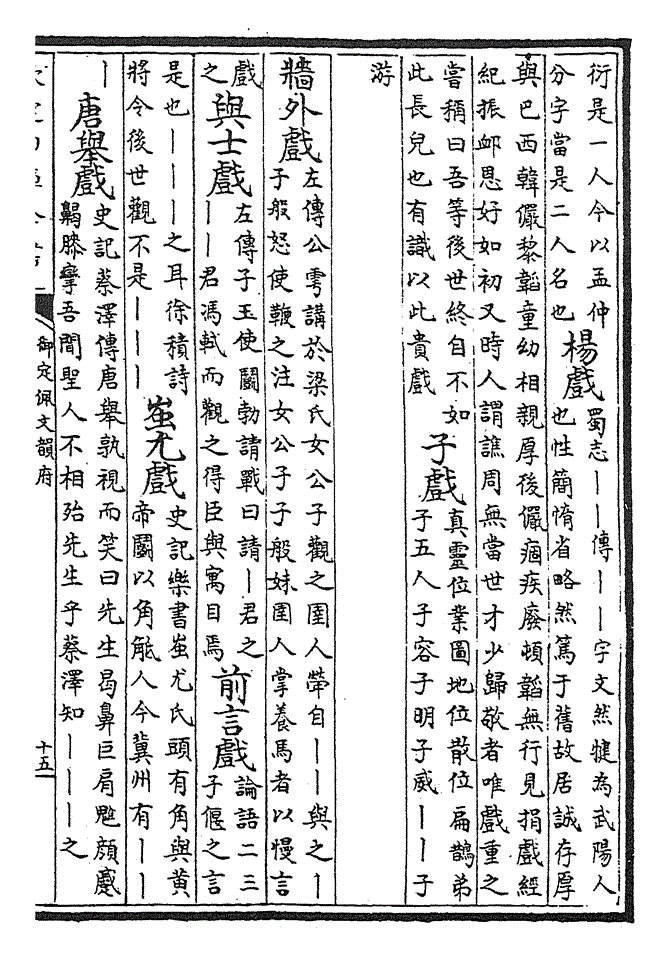 衍是一人今以孟仲
分字當是二人名也
楊戲
蜀志――傳――字文然犍為武陽人
也性簡惰省略然篤于舊故居誠存厚
與巴西韓儼黎韜童幼相親厚後儼痼疾廢頓韜無行見捐戲經
紀振卹恩好如初又時人謂譙周無當世才少歸敬者唯戲重之
嘗稱曰吾等後世終自不如
此長兒也有識以此貴戲
子戲
真靈位業圖地位散位扁鵲弟
子五人子容子明子威――子
游
牆外戲
左傳公雩講於梁氏女公子觀之圉人犖自――與之―
子般怒使鞭之注女公子子般妹圉人掌養馬者以慢言
戲
之
與士戲
左傳子玉使鬭勃請戰曰請―君之
――君馮軾而觀之得臣與寓目焉
前言戲
論語二三
子偃之言
是也―――之耳徐積詩
將令後世觀不是―――
蚩尤戲
史記樂書蚩尤氏頭有角與黃
帝鬭以角觝人今冀州有――
―
唐舉戲
史記蔡澤傳唐舉孰視而笑曰先生曷鼻巨肩魋顏蹙
齃膝攣吾聞聖人不相殆先生乎蔡澤知―――之
御定佩文韻府
十五